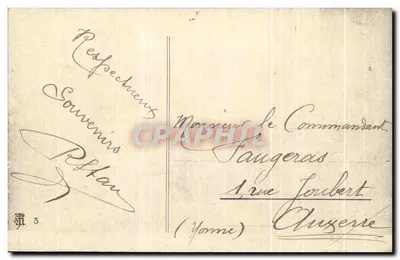 Respectueux
Souvenirs
Monsieur le Commandant
Faugeras
1, rue Joubert
Auxerre
(Yonne)
CPAPHIL.COM
3